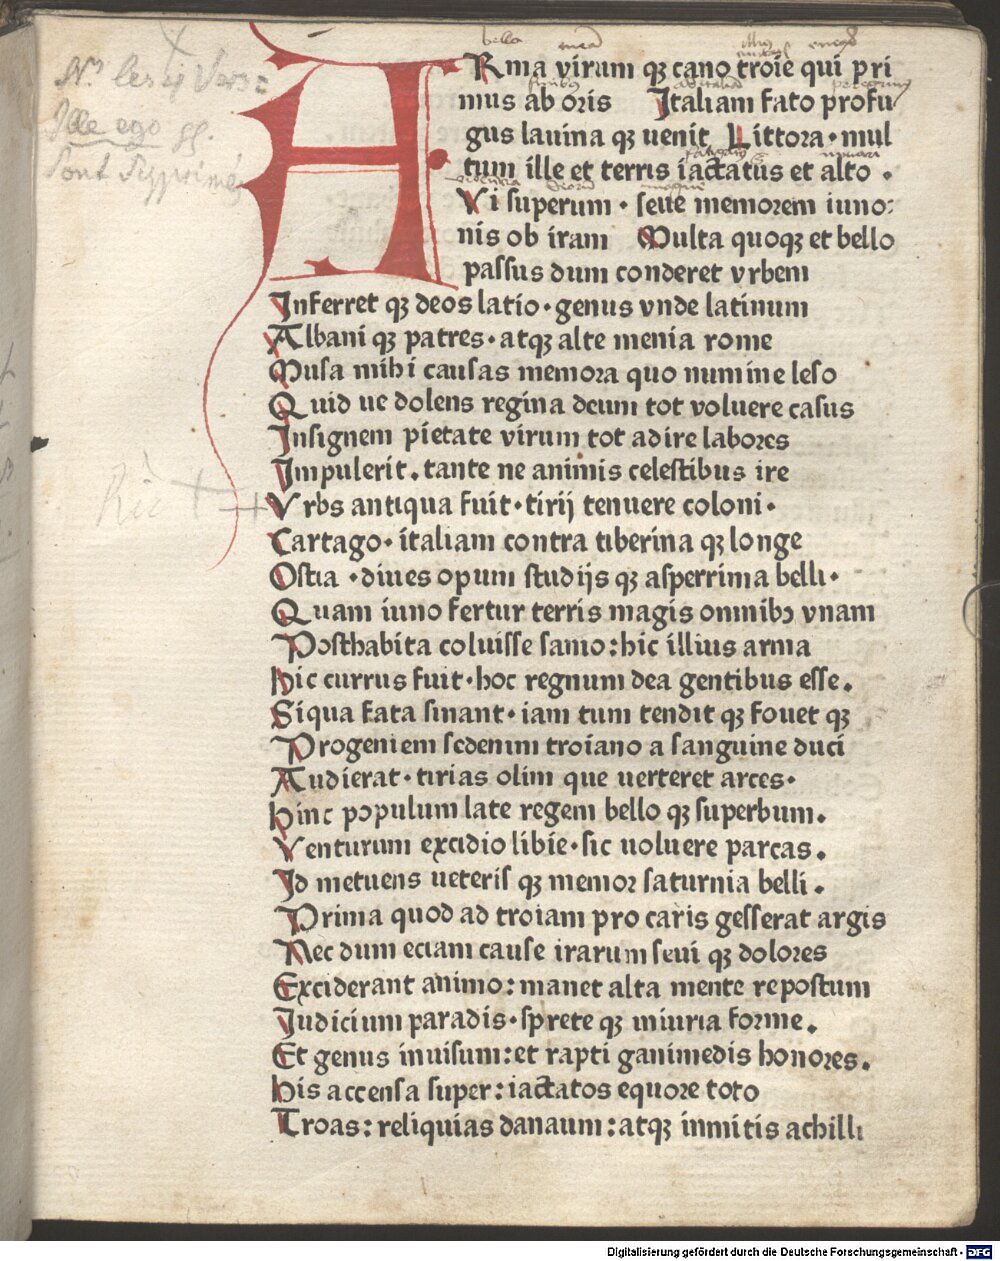 ARma virum qꝫ cano troie qui pri
mus ab oris Italiam fato profu
gus lauina qꝫ uenit Littora · mul
tum ille et terris iactatus et alto .
Vi superum · seue memorem iuno:
nis ob iram Multa quoqꝫ et bello
passus dum conderet vrbem
Inferret qꝫ deos latio · genus vnde latinum
Albani qꝫ patres · atqꝫ alte menia rome
Musa mihi causas memora quo numine leso
Quid ue dolens regina deum tot voluere casus
Insignem pietate virum tot adire labores
Impulerit . tante ne animis celestibus ire
Vrbs antiqua fuit · tirij tenuere coloni ·
Cartago · italiam contra tiberina qꝫ longe
Ostia · diues opum studijs qꝫ asperrima belli ·
Quam iuno fertur terris magis omnibꝫ vnam
Posthabita coluisse samo : hic illius arma
hic currus fuit · hoc regnum dea gentibus esse .
Siqua fata sinant · iam tum tendit qꝫ fouet qꝫ
Progeniem sedenim troiano a sanguine duci
Audierat · tirias olim que uerteret arces ·
hinc populum late regem bello qꝫ superbum .
Venturum excidio libie · sic uoluere parcas .
Id metuens ueteris qꝫ memor saturnia belli .
Prima quod ad troiam pro caris gesserat argis
Nec dum eciam cause irarum seui qꝫ dolores
Exciderant animo : manet alta mente repostum
Judicium paradis · sprete qꝫ iniuria forme .
Et genus inuisum : et rapti ganimedis honores .
his accensa super : iactatos equore toto
Troas : reliquias danaum : atqꝫ inmitis achilli
Ille ego
Digitalisierung gefördert durch die Deutsche Forschungsgemeinschaft - DFG